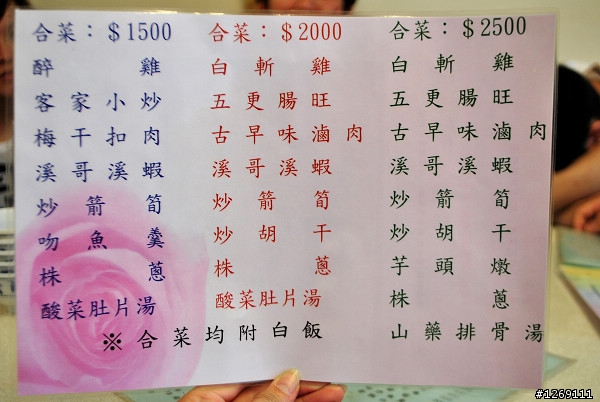 合菜：＄1500
醉雞
客家小炒
梅干扣肉
溪哥溪蝦
炒箭筍
吻魚羹
株蔥
酸菜肚片湯
合菜：＄2000
白斬雞
五更腸旺
古早味滷肉
溪哥溪蝦
炒箭筍
炒胡干
株蔥
酸菜肚片湯
合菜：＄2500
白斬雞
五更腸旺
古早味滷肉
溪哥溪蝦
炒箭筍
炒胡干
芋頭燉
株蔥
山藥排骨湯
※合菜均附白飯
#1269111